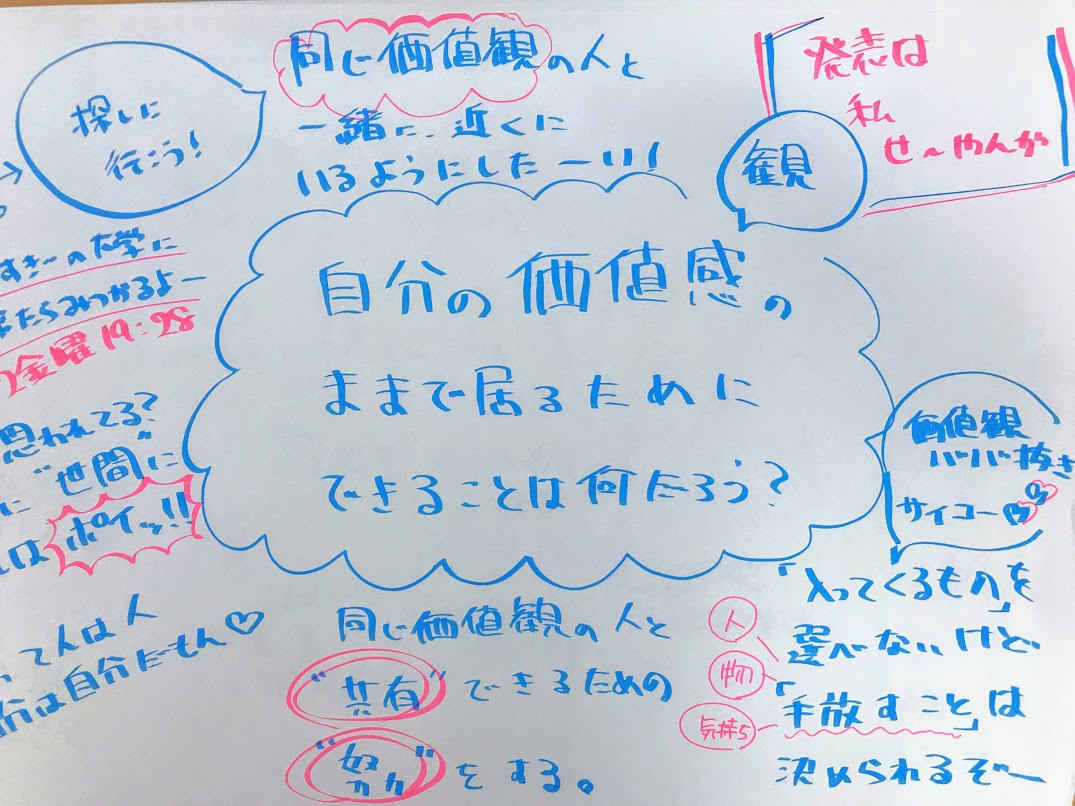 探しに
行こう！
同じ価値観の人と
一緒に、近くに
いるようにしたーい！
発表は
私
せ〜やんが
観
自分の価値感の
ままで居るために
できることは何だろう？
すき〜の大学に
たらみつかるよー
金曜19:28
思われてる？
に"世間"に
はポイッ!!
人は人
は自分だもん♡
価値観
ババ抜き
サイコー♡♡
同じ価値観の人と
"共有"できるための
"努力"をする。
「入ってくるもの」を
選べないけど
「手放すこと」は
決められるぞー
人
物
気持ち